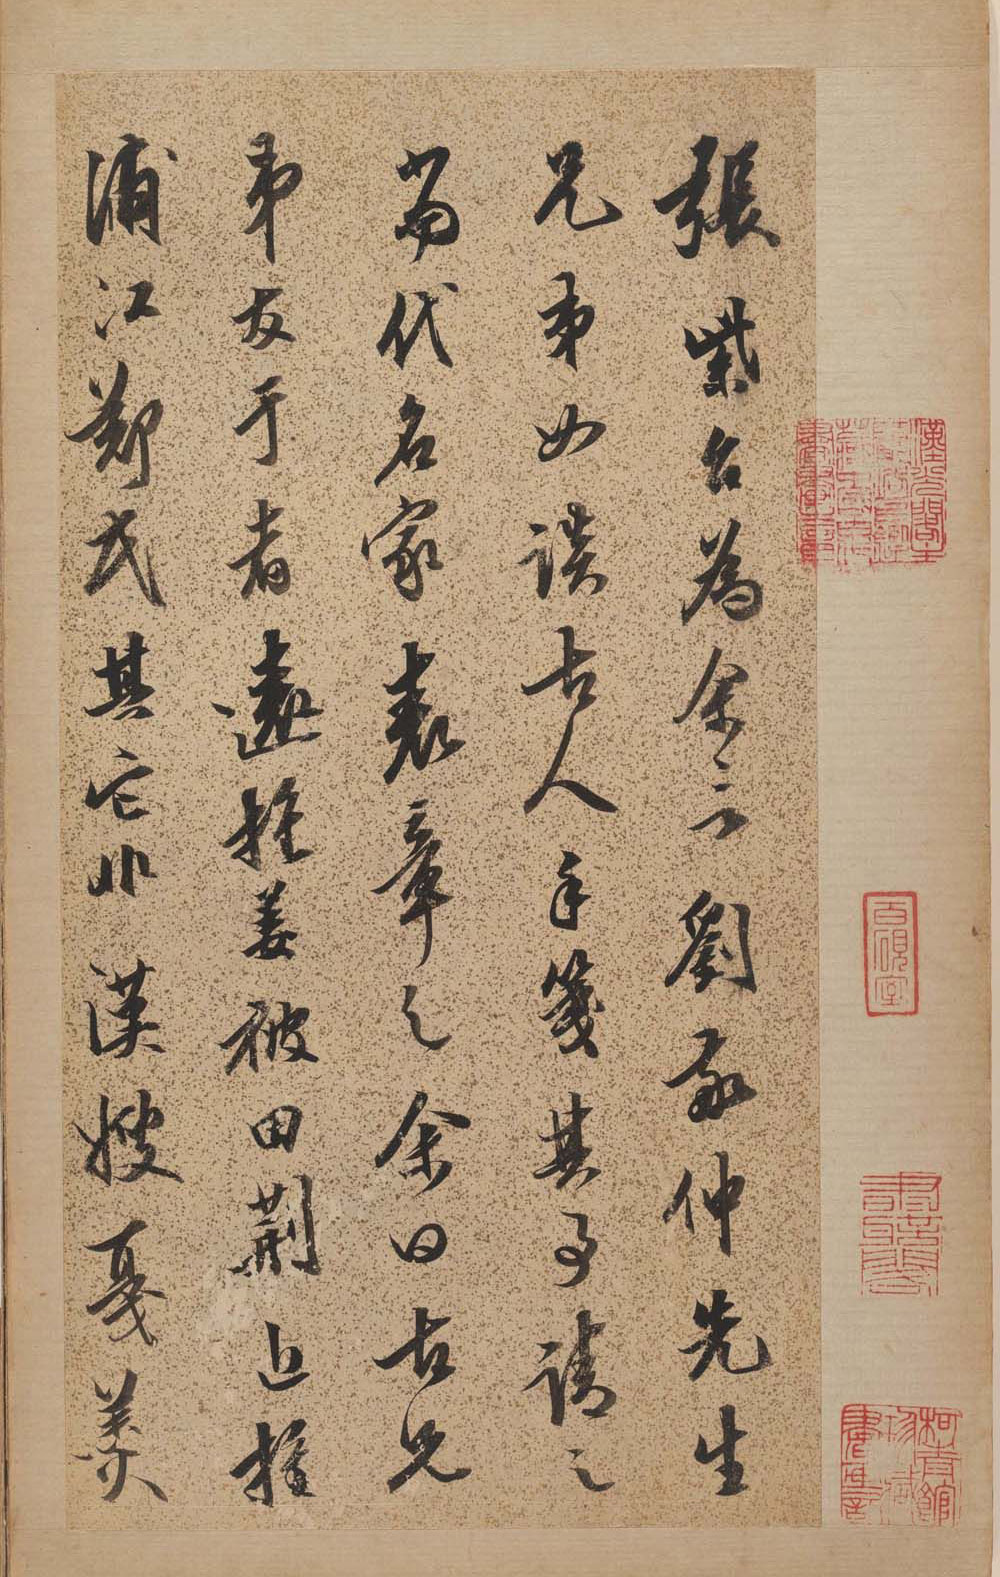 張紫台為余言劉敬仲先生
兄弟如談古人手箋其事請之
當代名家表章之余曰古兄
弟友于者遠推姜被田荊近推
浦江鄭氏其它非漢嫂戛羹
百硯室